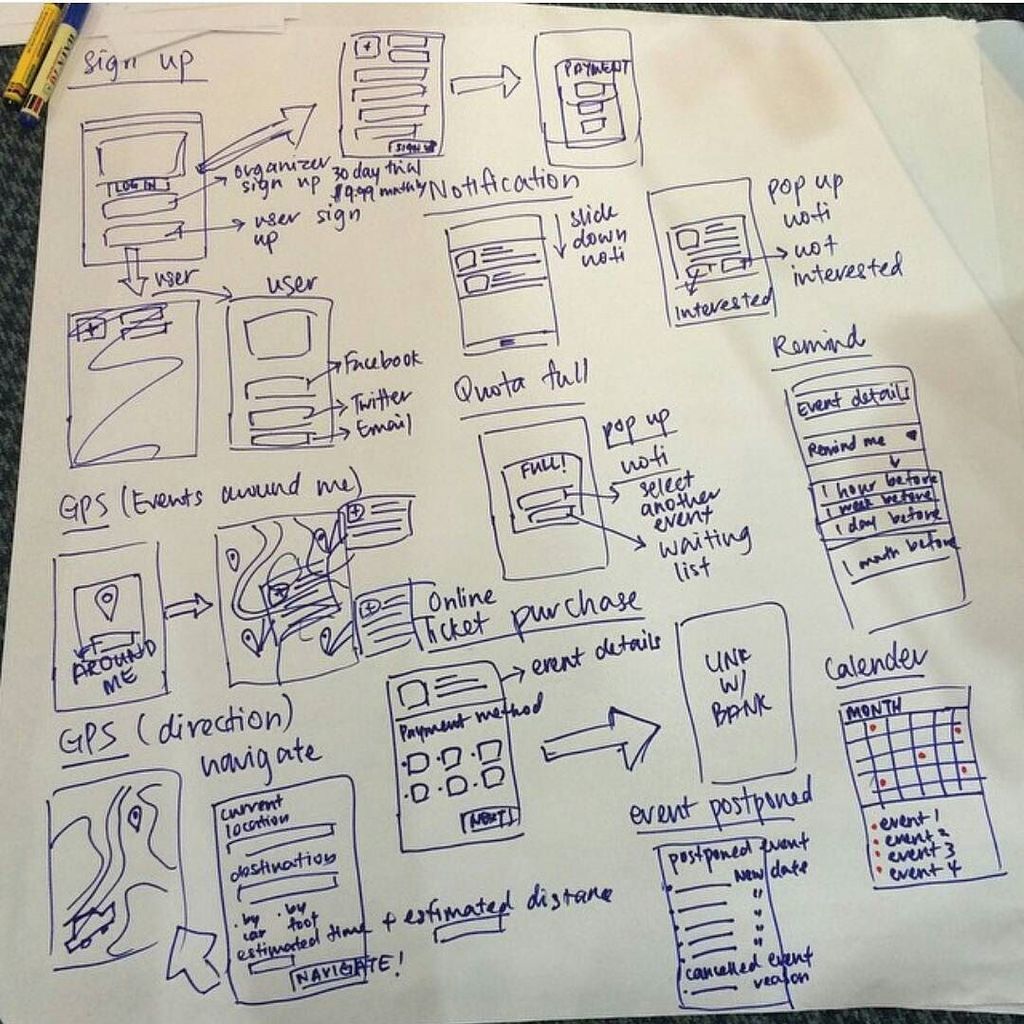 Sign up
LOG IN
organizer
sign up
user sign
up
30 day trial
$9.99 monthly
SIGN UP
PAYMENT
user
user
Facebook
Twitter
Email
Notification
slide
down
noti
pop up
noti
not
interested
Interested
Quota full
FULL!
pop up
noti
select
another
event
waiting
list
Remind
Event details
Remind me
1 hour before
1 week before
1 day before
1 month before
GPS (Events around me)
AROUND
ME
Online
Ticket purchase
event details
Payment method
NEXT
LINK
W/
BANK
Calender
MONTH
event 1
event 2
event 3
event 4
GPS (direction)
navigate
current
location
destination
by
car
by
foot
estimated time + estimated distance
NAVIGATE!
event postponed
postponed event
New date
"
"
"
"
cancelled event
reason